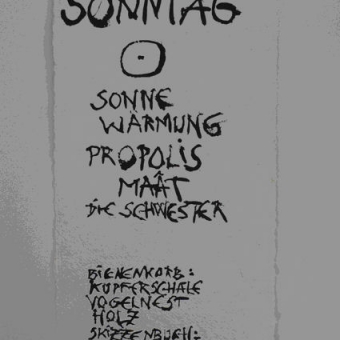 SONNTAG
SONNE
WÄRMUNG
PROPOLIS
MAÂT
DIE SCHWESTER
BIENENKORB:
KUPFERSCHALE
VOGELNEST
HOLZ
SKIZZENBUCH: